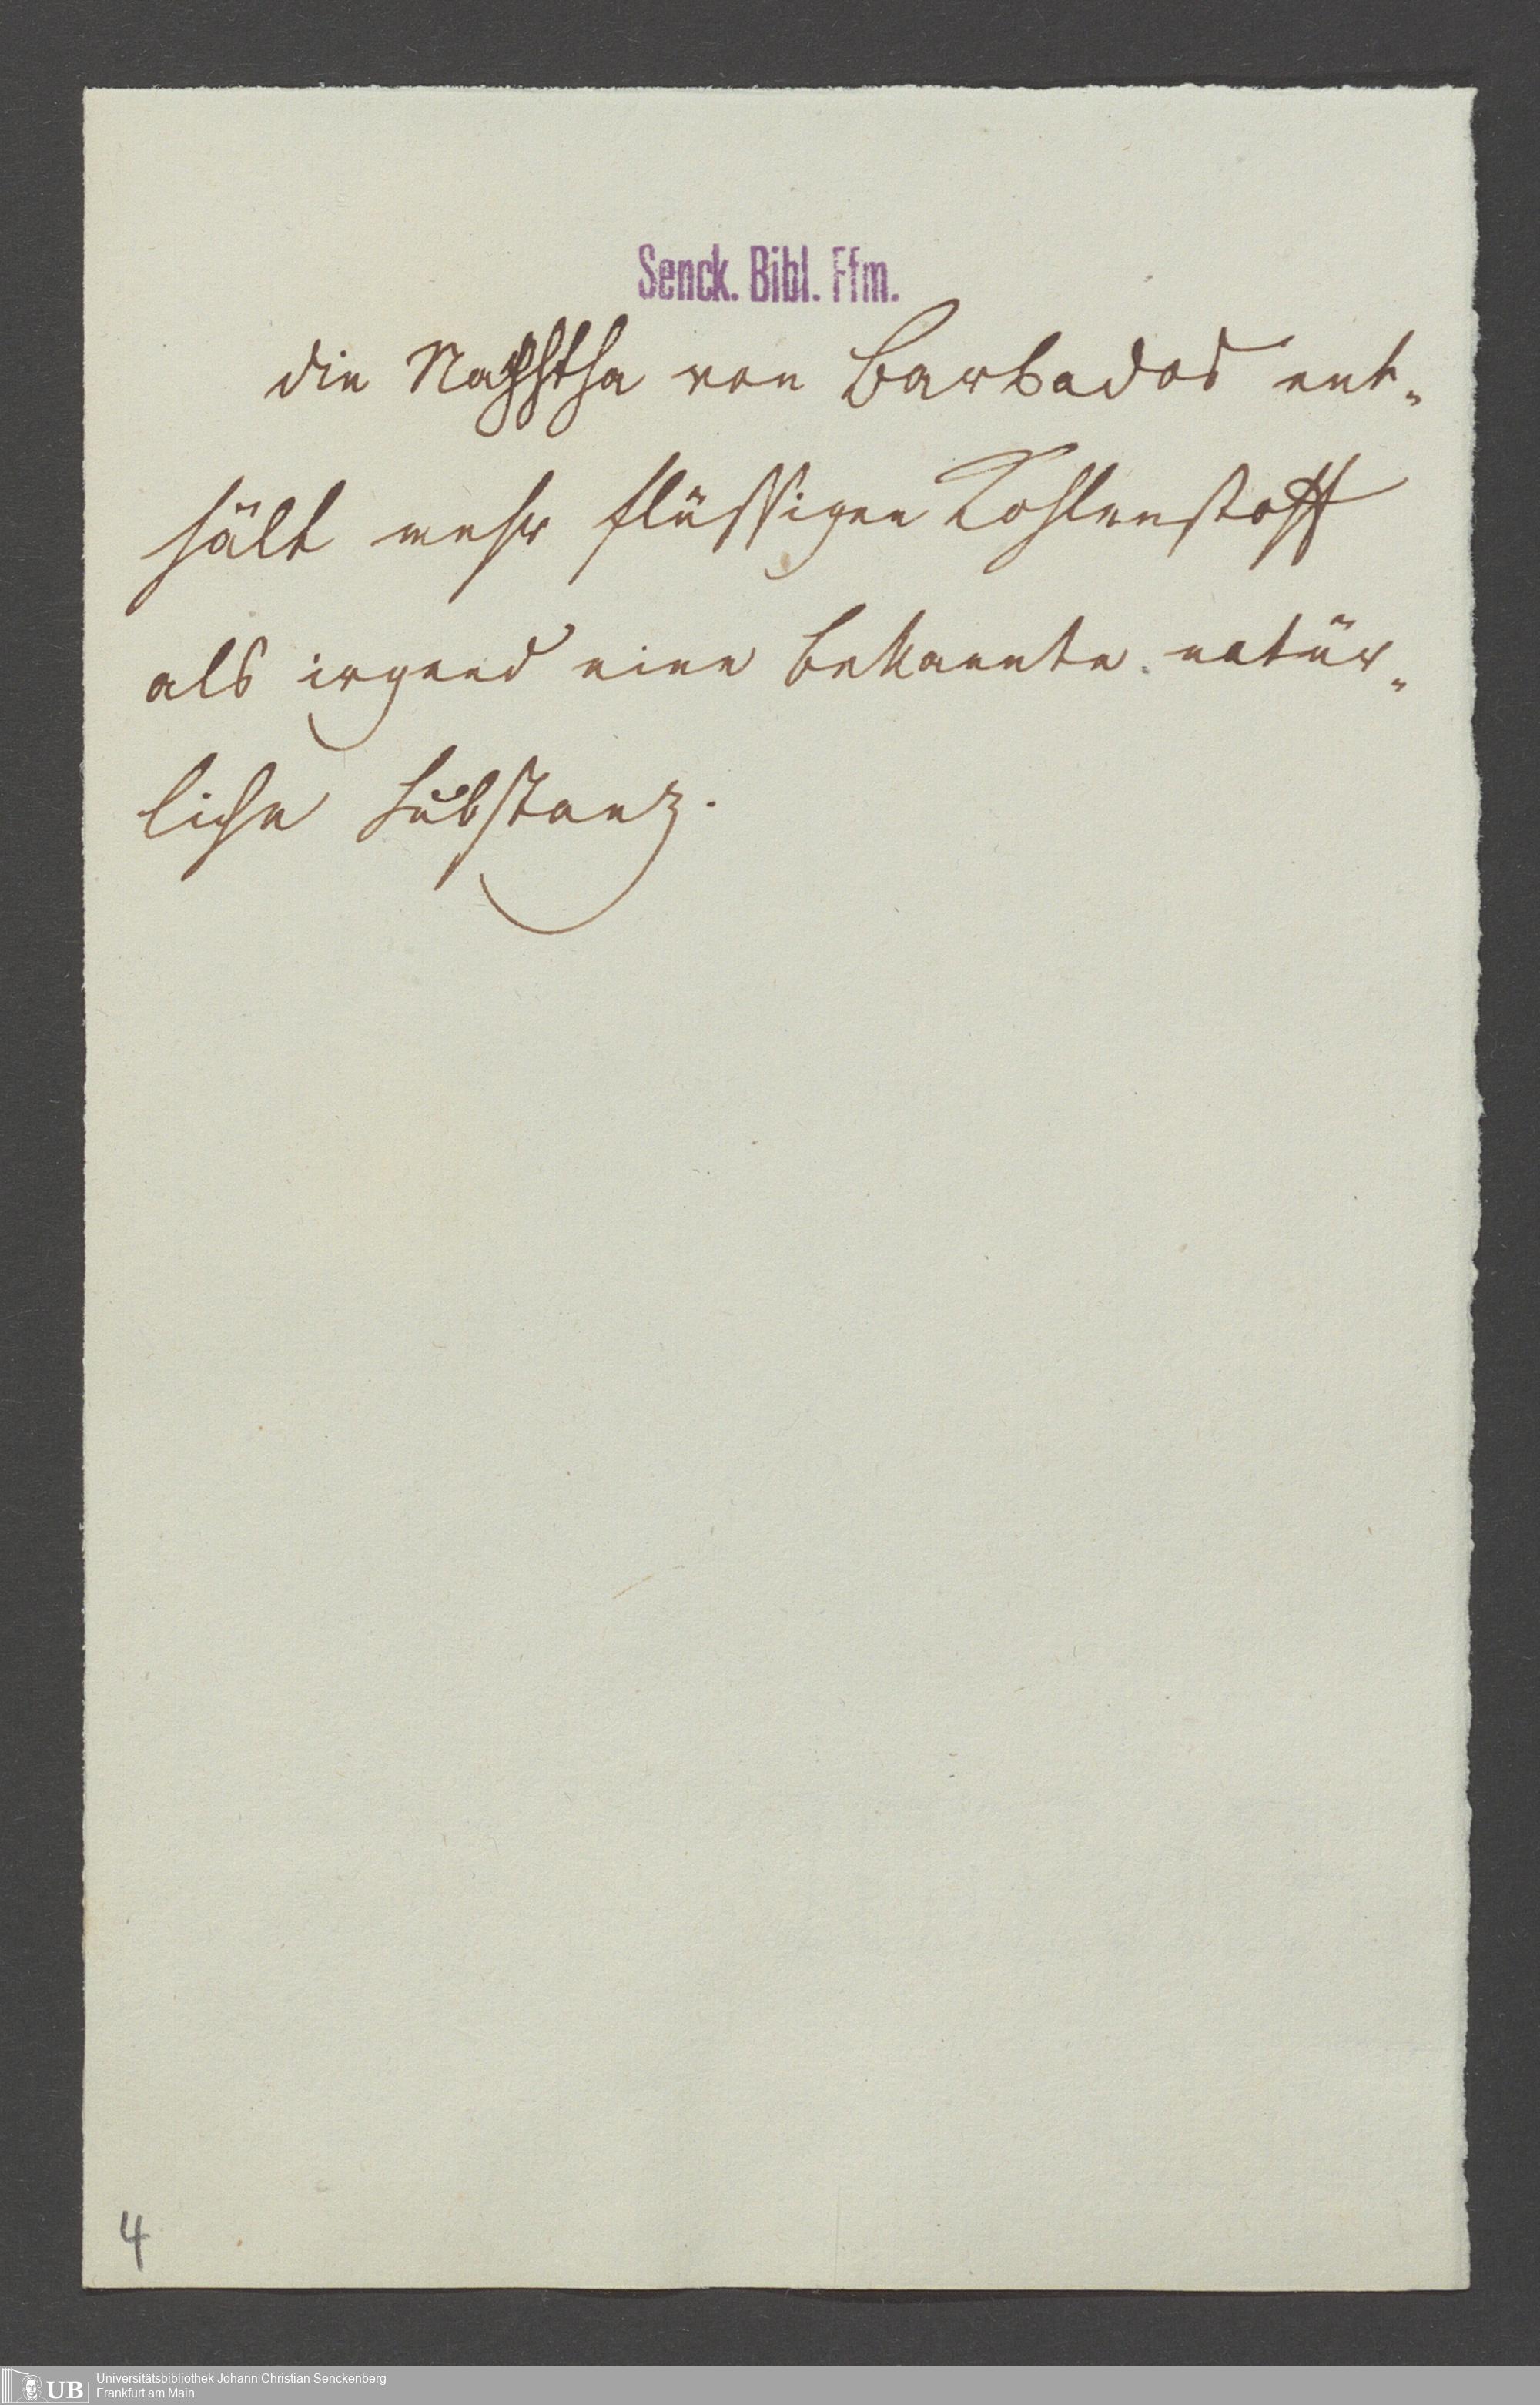 Senck. Bibl. Ffm.
die Naphtha von Barbados ent-
hält mehr flüssigen Kohlenstoff
als irgend eine bekannte natür-
liche Substanz.
4
UB Universitätsbibliothek Johann Christian Senckenberg
Frankfurt am Main